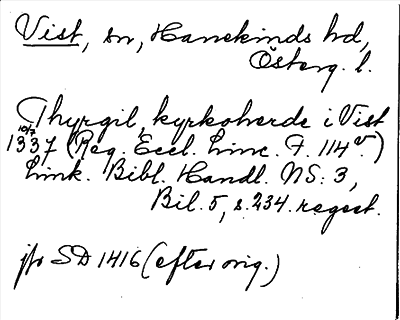 Vist, sn, Hanekinds hd,
Österg. l.
Thyrgil, kyrkoherde i Vist
10/7
1337 (Reg. Eccl. Linc. F. 114 v.)
Link. Bibl. Handl. NS: 3,
Bil. 5, s. 234. regest.
jfr SD 1416 (efter orig.)